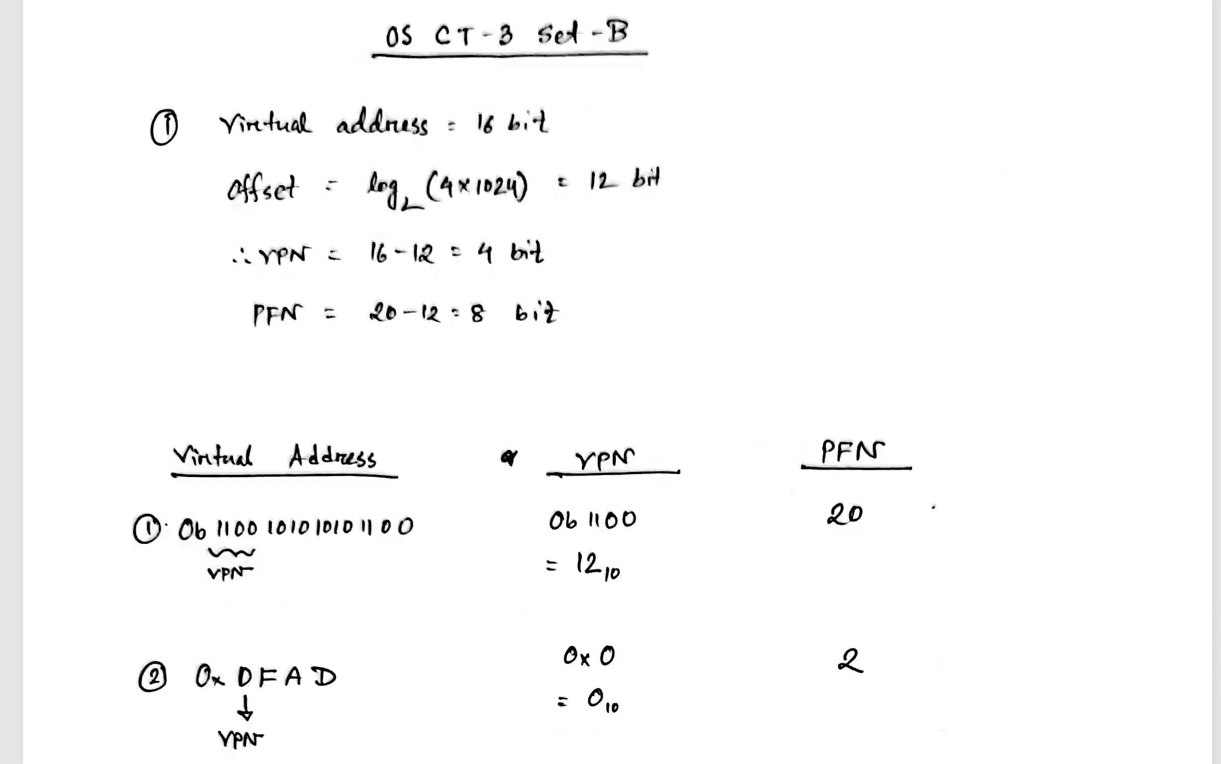 OS CT-3 Set-B
① Virtual address = 16 bit
offset = log₂ (4×1024) = 12 bit
∴ VPN = 16-12 = 4 bit
PFN = 20-12 = 8 bit
Virtual Address VPN PFN
①. 0b 1100 1010 1010 1100 0b 1100 20
VPN = 12₁₀
② 0x 0FAD 0x 0 2
↓ = 0₁₀
VPN